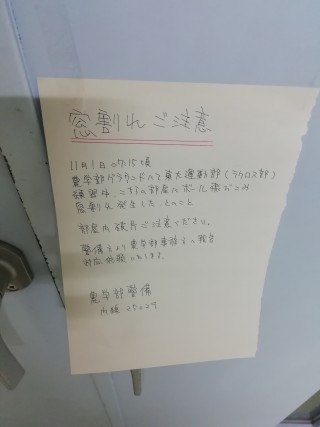 窓割れご注意
11月1日 07:15頃
農学部グラウンドにて東大運動部(ラクロス部)
練習中、こちらの部屋にボール飛びこみ
窓割れ発生したとのこと
部屋内破片ご注意ください。
警備より農学部
対応依頼
農学部警備
内線 25029